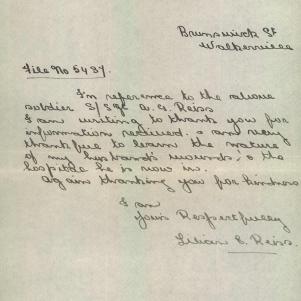 Brunswick St
Walkerville
File No 5437.
In reference to the above
soldier S/Sgt A. G. Reiss
I am writing to thank you for
information received. I am very
thankful to learn the nature
of my husbands wounds, & the
hospital he is now in.
Again thanking you for kindness
I am
Yours Respectfully
Lilian E. Reiss.